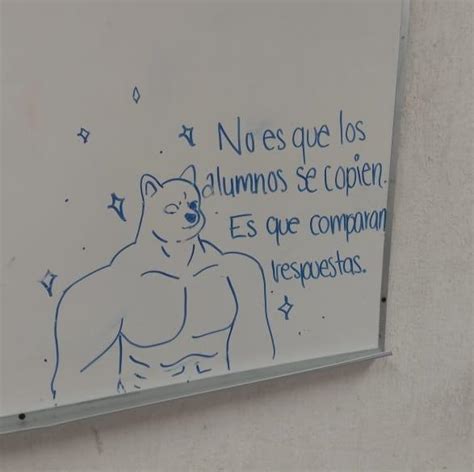 No es que los
alumnos se copien.
Es que comparan
respuestas.